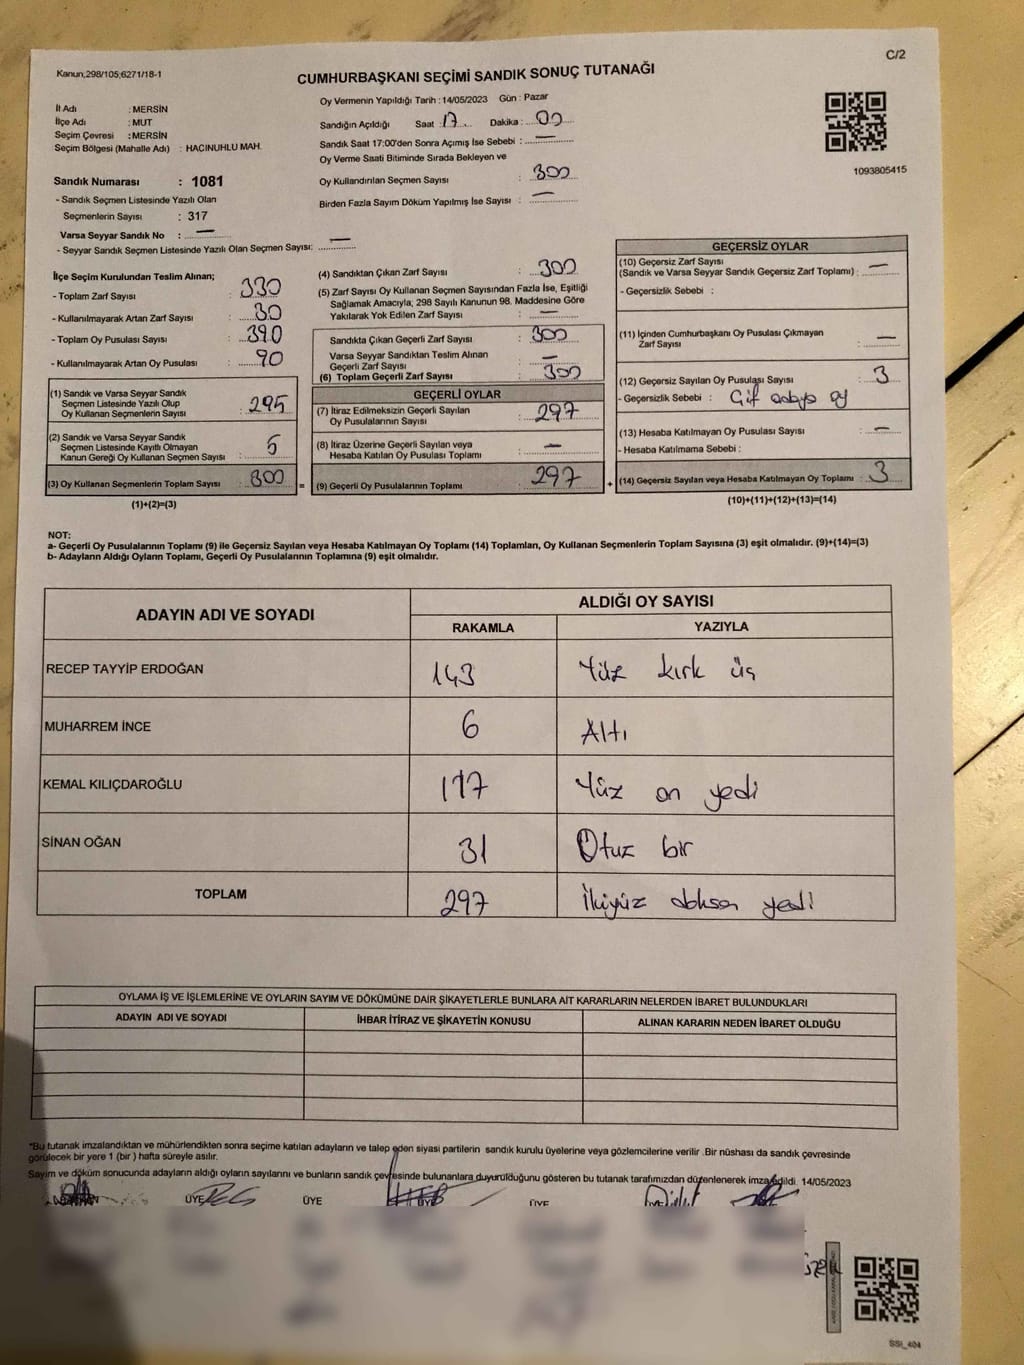 C/2
Kanun;298/105;6271/18-1
CUMHURBAŞKANI SEÇİMİ SANDIK SONUÇ TUTANAĞI
İl Adı : MERSİN
İlçe Adı : MUT
Seçim Çevresi : MERSİN
Seçim Bölgesi (Mahalle Adı) : HACINUHLU MAH.
Oy Vermenin Yapıldığı Tarih : 14/05/2023 Gün : Pazar
Sandığın Açıldığı Saat : 17 Dakika : 00
Sandık Saat 17:00'den Sonra Açımış İse Sebebi : —
Oy Verme Saati Bitiminde Sırada Bekleyen ve
Oy Kullandırılan Seçmen Sayısı : 300
Birden Fazla Sayım Döküm Yapılmış İse Sayısı : —
1093805415
Sandık Numarası : 1081
- Sandık Seçmen Listesinde Yazılı Olan
Seçmenlerin Sayısı : 317
Varsa Seyyar Sandık No : —
- Seyyar Sandık Seçmen Listesinde Yazılı Olan Seçmen Sayısı: —
İlçe Seçim Kurulundan Teslim Alınan;
- Toplam Zarf Sayısı : 330
- Kullanılmayarak Artan Zarf Sayısı : 30
- Toplam Oy Pusulası Sayısı : 390
- Kullanılmayarak Artan Oy Pusulası : 90
(1) Sandık ve Varsa Seyyar Sandık
Seçmen Listesinde Yazılı Olup
Oy Kullanan Seçmenlerin Sayısı : 295
(2) Sandık ve Varsa Seyyar Sandık
Seçmen Listesinde Kayıtlı Olmayan
Kanun Gereği Oy Kullanan Seçmen Sayısı : 5
(3) Oy Kullanan Seçmenlerin Toplam Sayısı : 300
(1)+(2)=(3)
(4) Sandıktan Çıkan Zarf Sayısı : 300
(5) Zarf Sayısı Oy Kullanan Seçmen Sayısından Fazla İse, Eşitliği
Sağlamak Amacıyla; 298 Sayılı Kanunun 98. Maddesine Göre
Yakılarak Yok Edilen Zarf Sayısı : —
Sandıkta Çıkan Geçerli Zarf Sayısı : 300
Varsa Seyyar Sandıktan Teslim Alınan
Geçerli Zarf Sayısı : —
(6) Toplam Geçerli Zarf Sayısı : 300
GEÇERLİ OYLAR
(7) İtiraz Edilmeksizin Geçerli Sayılan
Oy Pusulalarının Sayısı : 297
(8) İtiraz Üzerine Geçerli Sayılan veya
Hesaba Katılan Oy Pusulası Toplamı : —
= (9) Geçerli Oy Pusulalarının Toplamı : 297
GEÇERSİZ OYLAR
(10) Geçersiz Zarf Sayısı
(Sandık ve Varsa Seyyar Sandık Geçersiz Zarf Toplamı) : —
- Geçersizlik Sebebi :
(11) İçinden Cumhurbaşkanı Oy Pusulası Çıkmayan
Zarf Sayısı : —
(12) Geçersiz Sayılan Oy Pusulası Sayısı : 3
- Geçersizlik Sebebi : Çift oy
(13) Hesaba Katılmayan Oy Pusulası Sayısı : —
- Hesaba Katılmama Sebebi :
+ (14) Geçersiz Sayılan veya Hesaba Katılmayan Oy Toplamı : 3
(10)+(11)+(12)+(13)=(14)
NOT:
a- Geçerli Oy Pusulalarının Toplamı (9) ile Geçersiz Sayılan veya Hesaba Katılmayan Oy Toplamı (14) Toplamları, Oy Kullanan Seçmenlerin Toplam Sayısına (3) eşit olmalıdır. (9)+(14)=(3)
b- Adayların Aldığı Oyların Toplamı, Geçerli Oy Pusulalarının Toplamına (9) eşit olmalıdır.
ADAYIN ADI VE SOYADI
ALDIĞI OY SAYISI
RAKAMLA YAZIYLA
RECEP TAYYİP ERDOĞAN 143 Yüz kırk üç
MUHARREM İNCE 6 Altı
KEMAL KILIÇDAROĞLU 117 Yüz on yedi
SİNAN OĞAN 31 Otuz bir
TOPLAM 297 İkiyüz doksan yedi
OYLAMA İŞ VE İŞLEMLERİNE VE OYLARIN SAYIM VE DÖKÜMÜNE DAİR ŞİKAYETLERLE BUNLARA AİT KARARLARIN NELERDEN İBARET BULUNDUKLARI
ADAYIN ADI VE SOYADI İHBAR İTİRAZ VE ŞİKAYETİN KONUSU ALINAN KARARIN NEDEN İBARET OLDUĞU
*Bu tutanak imzalandıktan ve mühürlendikten sonra seçime katılan adayların ve talep eden siyasi partilerin sandık kurulu üyelerine veya gözlemcilerine verilir .Bir nüshası da sandık çevresinde
görülecek bir yere 1 (bir ) hafta süreyle asılır.
Sayım ve döküm sonucunda adayların aldığı oyların sayılarını ve bunların sandık çevresinde bulunanlara duyurulduğunu gösteren bu tutanak tarafımızdan düzenlenerek imza edildi. 14/05/2023
ÜYE ÜYE ÜYE ÜYE ÜYE
SSİ_404